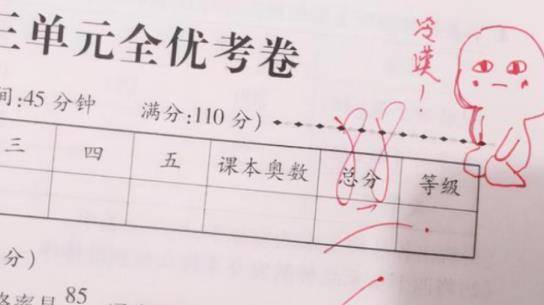 三单元全优考卷
间:45分钟 满分:110分)
三 四 五 课本奥数 总分 等级
分)
85